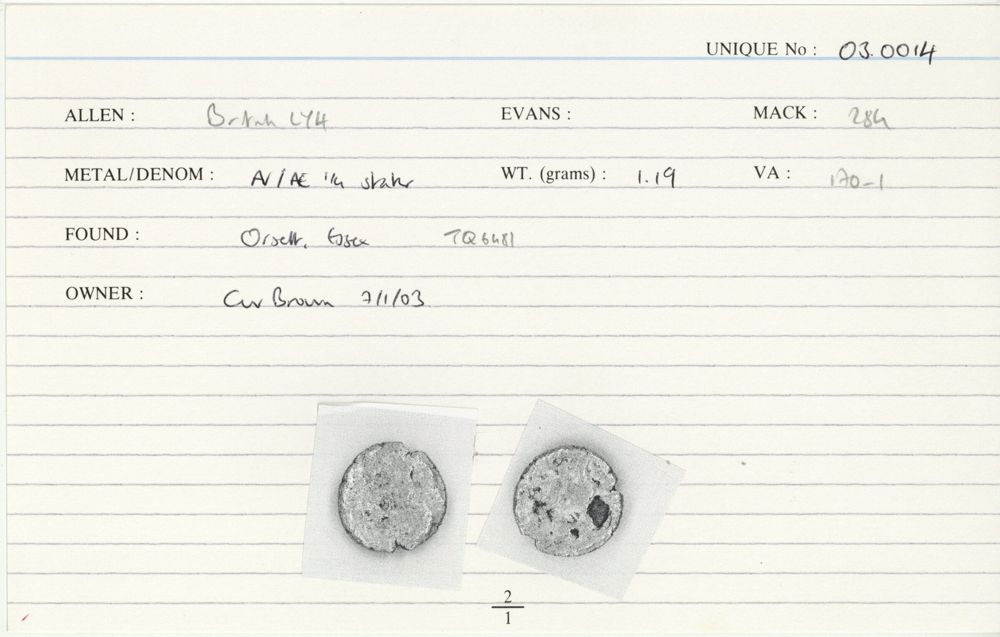 UNIQUE No : 03.0014
ALLEN : British LY4 EVANS : MACK : 284
METAL/DENOM : AV/Æ 1/4 stater WT. (grams) : 1.19 VA : 170-1
FOUND : Orsett, Essex TQ6481
OWNER : Brown 7/1/03
2
1